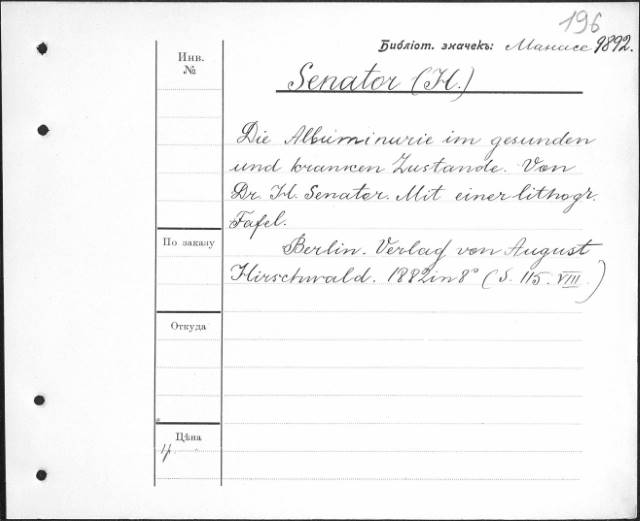 196
Библіот. значекъ: Манасе 9892.
Инв.
№
Senator (H.)
Die Albuminurie im gesunden
und kranken Zustande. Von
Dr. H. Senator. Mit einer lithogr.
Tafel.
По заказу
Berlin. Verlag von August
Hirschwald. 1882 in 8° (S. 115. VIII.)
Откуда
Цѣна
4.